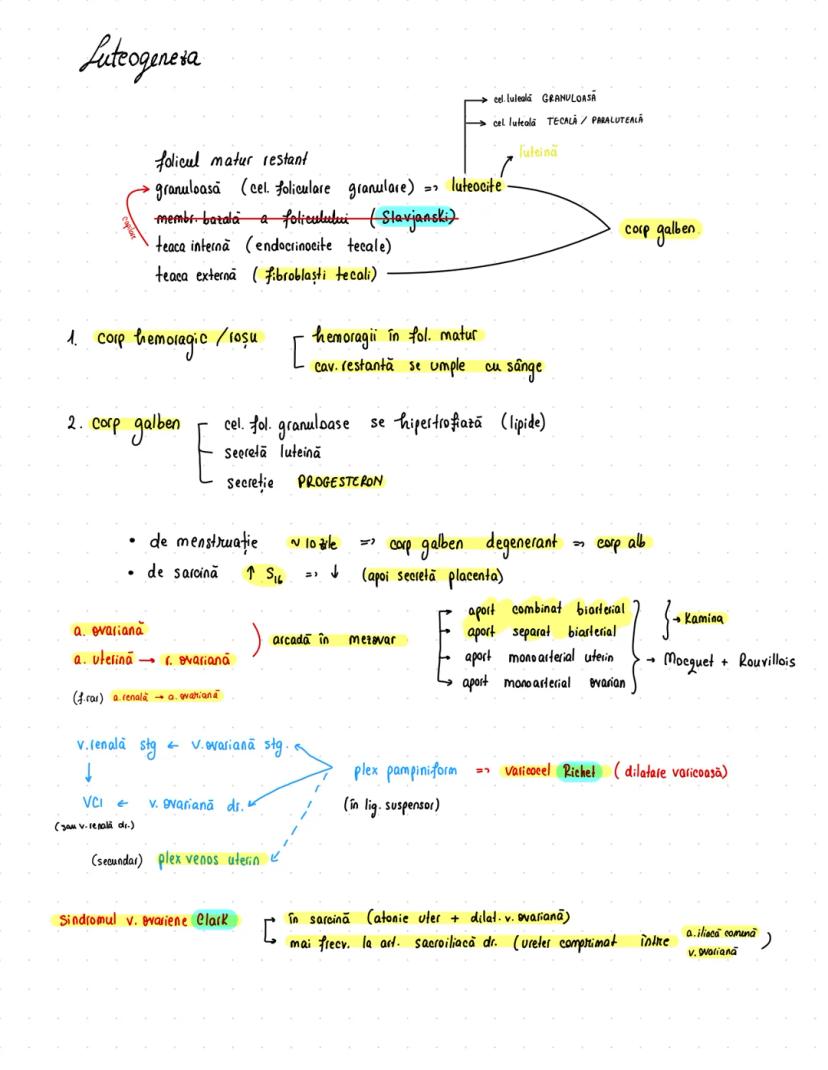 Luteogeneza
cel. luteală GRANULOASĂ
cel. luteală TECALĂ / PARALUTEALĂ
luteină
folicul matur restant
granuloasă (cel. foliculare granulare) => luteocite
membr. bazală a foliculului (Slavjanski)
capilare
corp galben
teaca internă (endocrinocite tecale)
teaca externă (fibroblaști tecali)
1. corp hemoragic / roșu
hemoragii în fol. matur
cav. restantă se umple cu sânge
2. corp galben
cel. fol. granuloase se hipertrofiază (lipide)
secretă luteină
secreție PROGESTERON
• de menstruație ~ 10 zile => corp galben degenerant => corp alb
• de sarcină ↑ S16 => ↓ (apoi secretă placenta)
a. ovariană
a. uterină → r. ovariană
arcadă în mezovar
(f. rar) a. renală → a. ovariană
aport combinat biarterial
aport separat biarterial
→ Kamina
aport monoarterial uterin
aport monoarterial ovarian
→ Mocquet + Rouvillois
v. renală stg ← v. ovariană stg.
↓
VCI ← v. ovariană dr.
(sau v. renală dr.)
plex pampiniform => varicocel Richet (dilatare varicoasă)
(în lig. suspensor)
(secundar) plex venos uterin
Sindromul v. ovariene Clark
în sarcină (atonie uter + dilat. v. ovariană)
mai frecv. la art. sacroiliacă dr. (ureter comprimat între a. iliacă comună
v. ovariană )